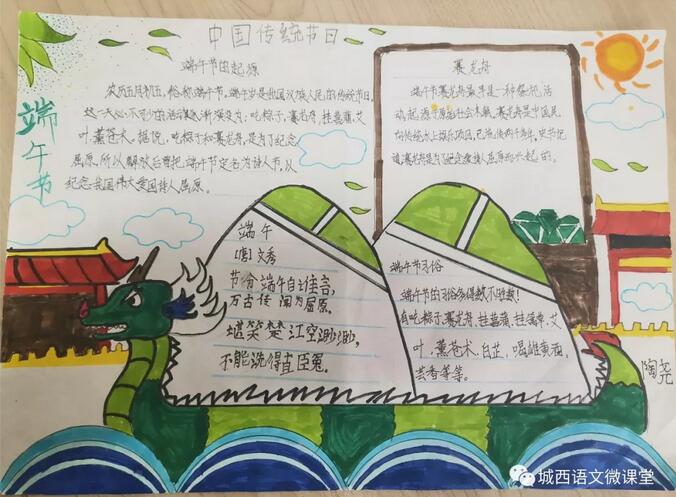 中国传统节日
端午节
端午节的起源
农历五月初五,俗称端午节。端午岁是我国汉族人民的传统节日。
这一天必不可少的活动逐渐演变为:吃粽子,赛龙舟,挂菖蒲,艾
叶,薰苍术。据说,吃粽子和赛龙舟,是为了纪念
屈原,所以解放后曾把端午节定名为诗人节,以
纪念我国伟大爱国诗人屈原。
赛龙舟
端午节赛龙舟最早是一种祭祀活
动,起源于原始社会末期,赛龙舟是中国民
间传统水上娱乐项目,已流传两千多年,史书记
端午
唐 文秀
节分端午自谁言,
万古传闻为屈原。
堪笑楚江空渺渺,
不能洗得直臣冤。
端午节习俗
端午节的习俗多得数不胜数!
有吃粽子,赛龙舟,挂菖蒲、挂蓬草、艾
叶,薰苍术、白芷,喝雄黄酒,
等等。
陶尧
城西语文微课堂